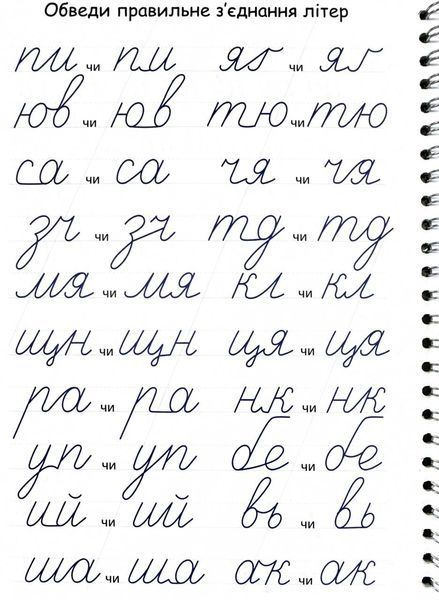 Обведи правильне з'єднання літер
пи чи пи яг чи яг
юв чи юв тю чи тю
са чи са чя чи чя
зч чи зч тд чи тд
мя чи мя кл чи кл
щн чи щн ця чи ця
ра чи ра нк чи нк
уп чи уп бе чи бе
ий чи ий вь чи вь
ша чи ша ак чи ак